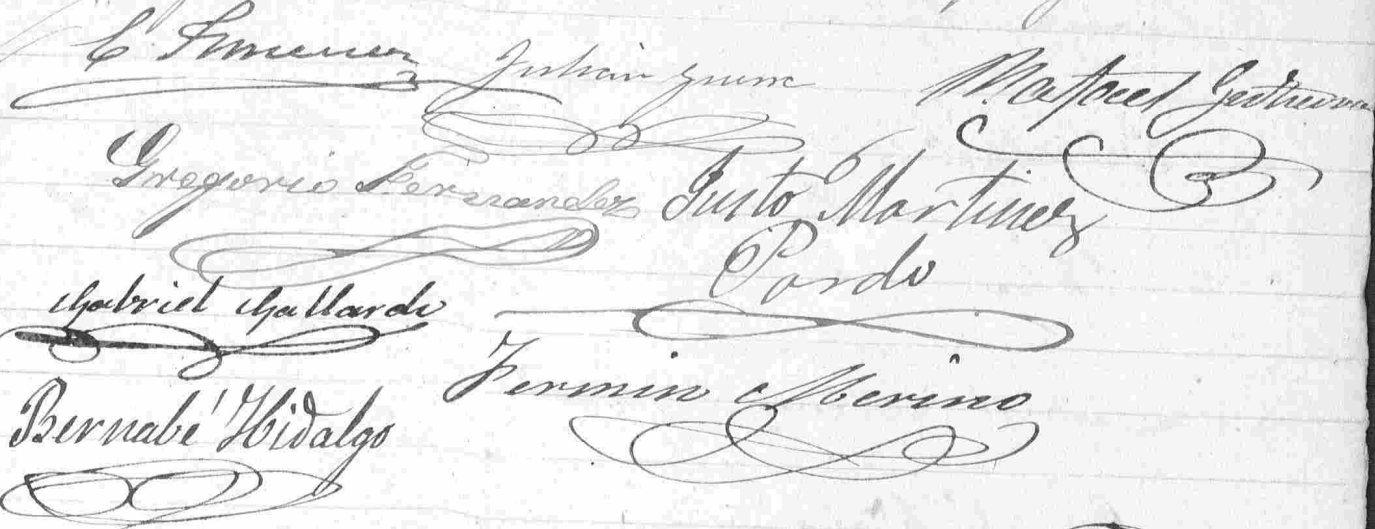 Julián
Rafael
Gregorio Fernandez Justo Martinez
Pardo
Gabriel Gallardo
Fermin Merino
Bernabé Hidalgo